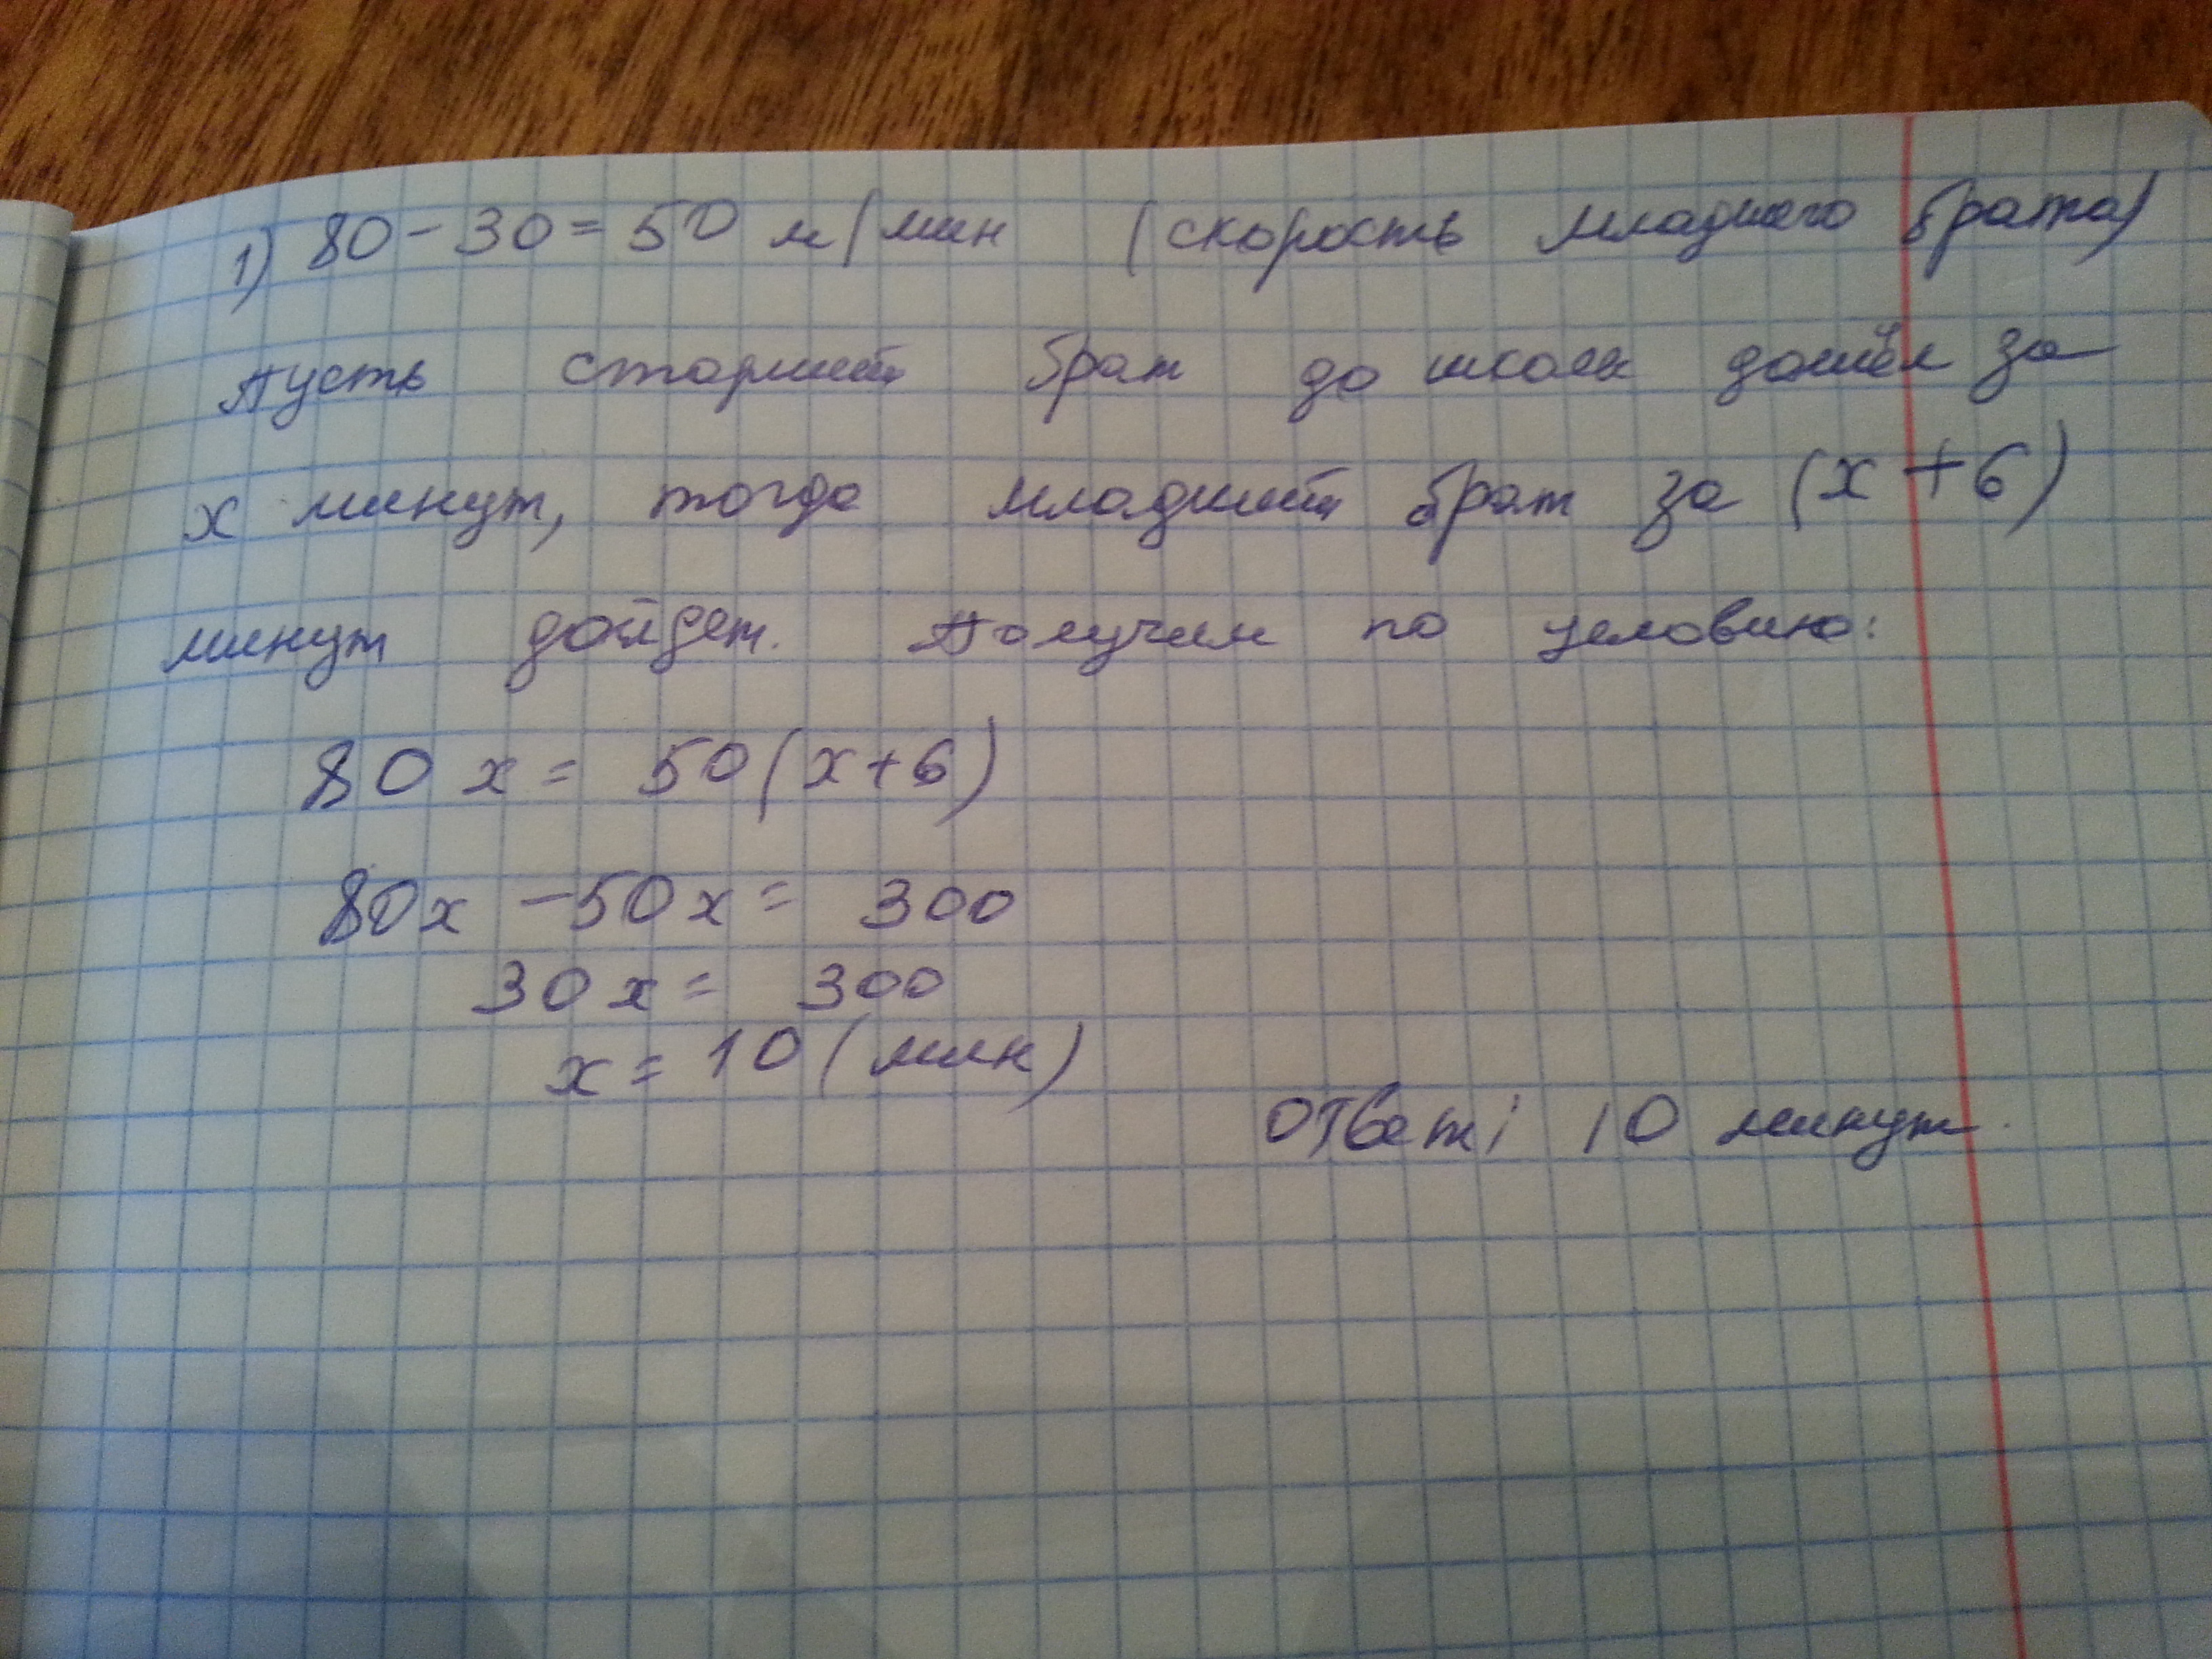 1) 80 - 30 = 50 м/мин (скорость младшего брата)
Пусть старший брат до школы дошёл за
x минут, тогда младший брат за (x + 6)
минут дойдет. Получим по условию:
80 x = 50 (x+6)
80x - 50x = 300
30x = 300
x = 10 (мин)
Ответ: 10 минут.